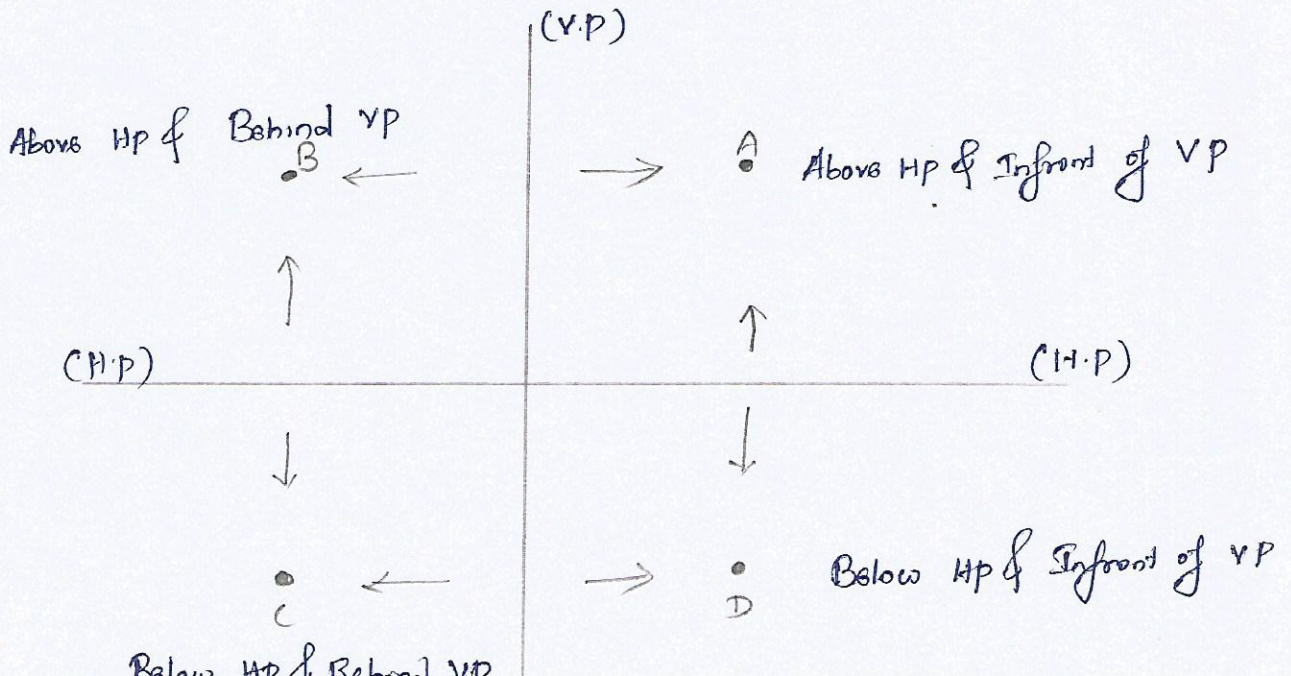 (V.P)
Above HP & Behind VP
B
A
Above HP & Infront of VP
(H.P)
(H.P)
C
D
Below HP & Infront of VP
Below HP & Behind VP